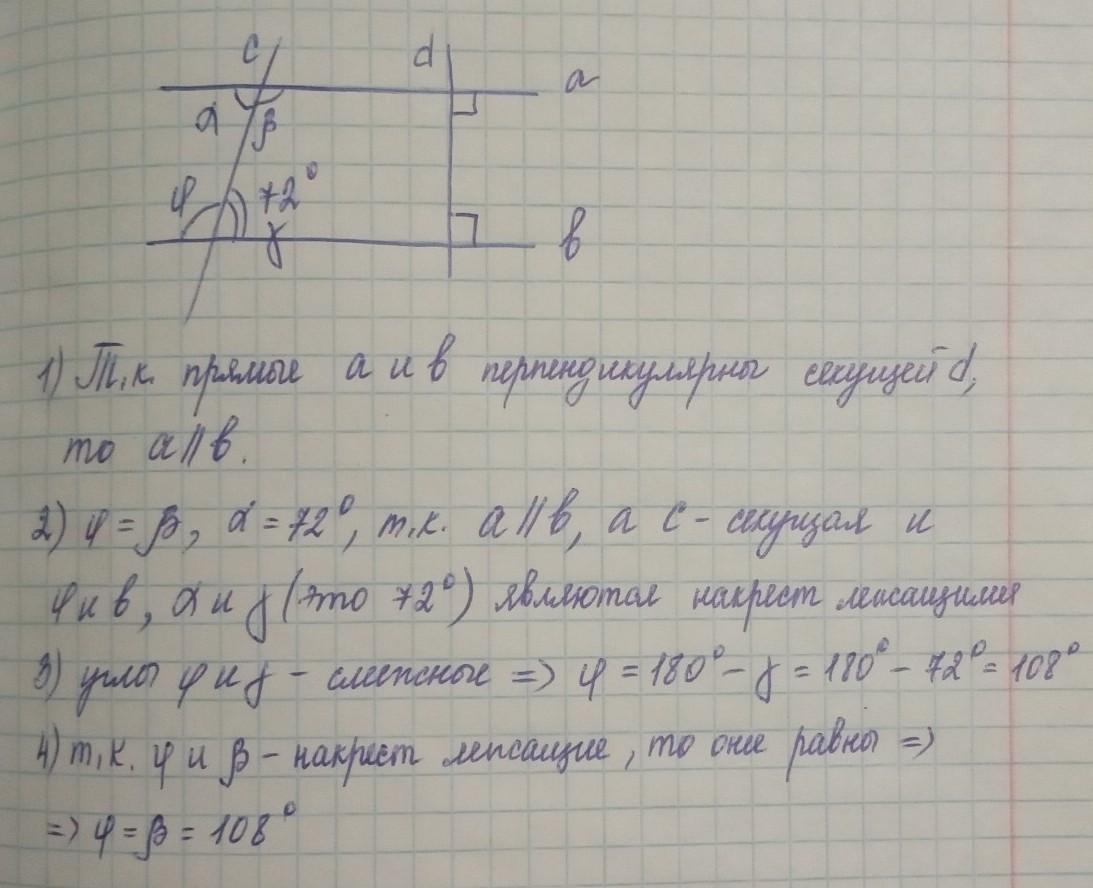 c d a
α β
φ 72°
γ b
1) Т.к. прямые a и b перпендикулярны секущей d,
то a || b.
2) φ = β, α = 72°, т.к. a || b, а c - секущая и
φ и b, α и γ (это 72°) являются накрест лежащими
3) углы φ и γ - смежные => φ = 180° - γ = 180° - 72° = 108°
4) т.к. φ и β - накрест лежащие, то они равны =>
=> φ = β = 108°